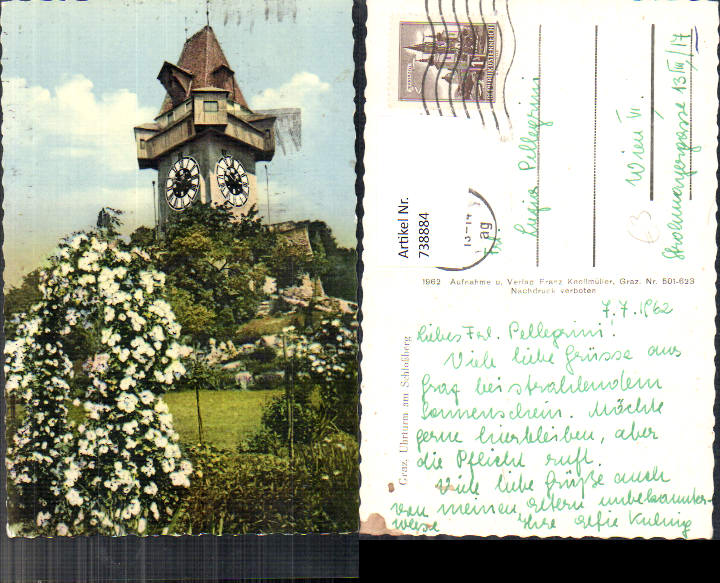 REPUBLIK ÖSTERREICH
Artikel Nr.
738884
Frl.
Luzia Pellegrini
Wien VI.
13/III/17
1962 Aufnahme u. Verlag Franz Knollmüller, Graz. Nr. 501-623
Nachdruck verboten
Graz. Uhrturm am Schloßberg
7.7.1962
Liebes Frl. Pellegrini!
Viele liebe Grüsse aus
Graz bei strahlendem
Sonnenschein. Möchte
gerne hierbleiben, aber
die Pflicht ruft.
Viele liebe Grüße auch
von meinen Eltern unbekannter-
weise Ihre